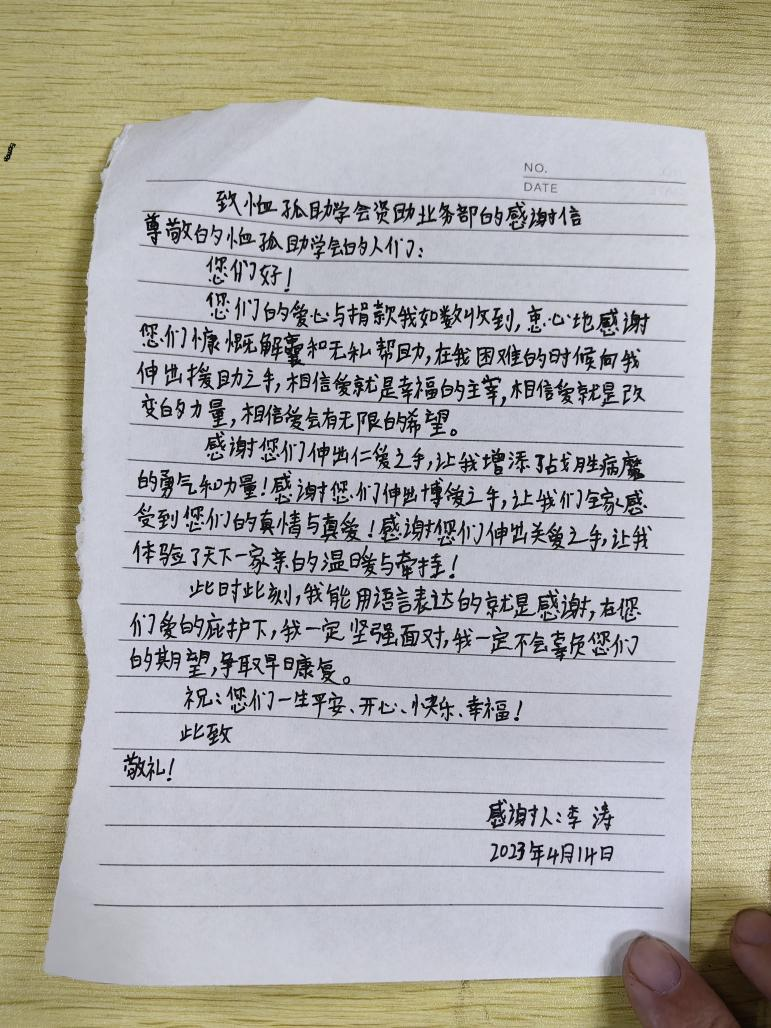 NO.
DATE
致恤孤助学会资助业务部的感谢信
尊敬的恤孤助学会的人们：
您们好！
您们的爱心与捐款我如数收到，衷心地感谢
您们慷慨解囊和无私帮助，在我困难的时候向我
伸出援助之手，相信爱就是幸福的主宰，相信爱就是改
变的力量，相信爱会有无限的希望。
感谢您们伸出仁爱之手，让我增添了战胜病魔
的勇气和力量！感谢您们伸出博爱之手，让我们全家感
受到您们的真情与真爱！感谢您们伸出关爱之手，让我
体验了天下一家亲的温暖与牵挂！
此时此刻，我能用语言表达的就是感谢，在您
们爱的庇护下，我一定坚强面对，我一定不会辜负您们
的期望，争取早日康复。
祝：您们一生平安、开心、快乐、幸福！
此致
敬礼！
感谢人：李涛
2023年4月14日